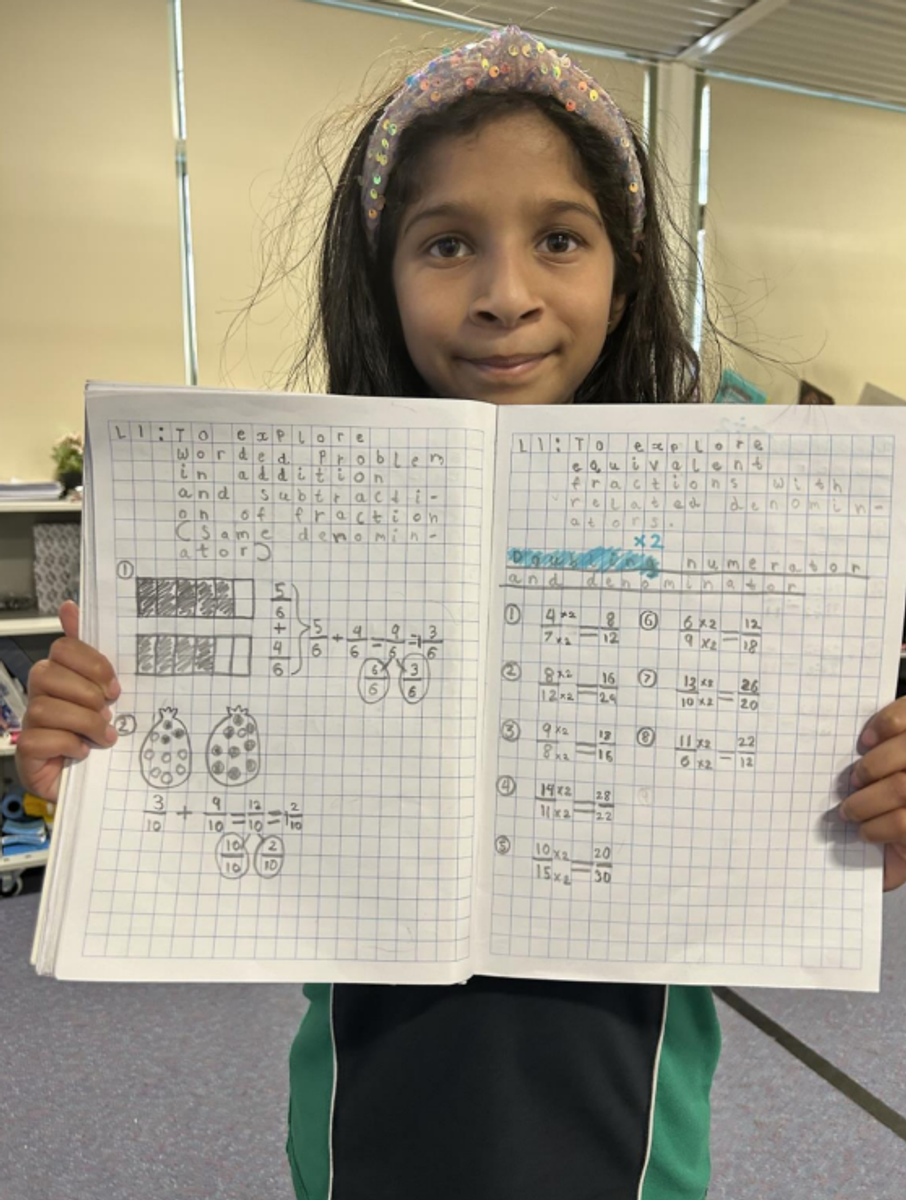 LI: To explore
worded problem
in addition
and subtracti-
on of fraction
(same denomin-
ator)
① 5/6 + 4/6 } 5/6 + 4/6 = 9/6 = 1 3/6
6/6 3/6
②
3/10 + 9/10 = 12/10 = 1 2/10
10/10 2/10
LI: To explore
equivalent
fractions with
related denomin-
ators.
×2
numerator
and denominator
① 4×2/7×2 = 8/12
② 8×2/12×2 = 16/24
③ 9×2/8×2 = 18/16
④ 14×2/11×2 = 28/22
⑤ 10×2/15×2 = 20/30
⑥ 6×2/9×2 = 12/18
⑦ 13×2/10×2 = 26/20
⑧ 11×2/6×2 = 22/12